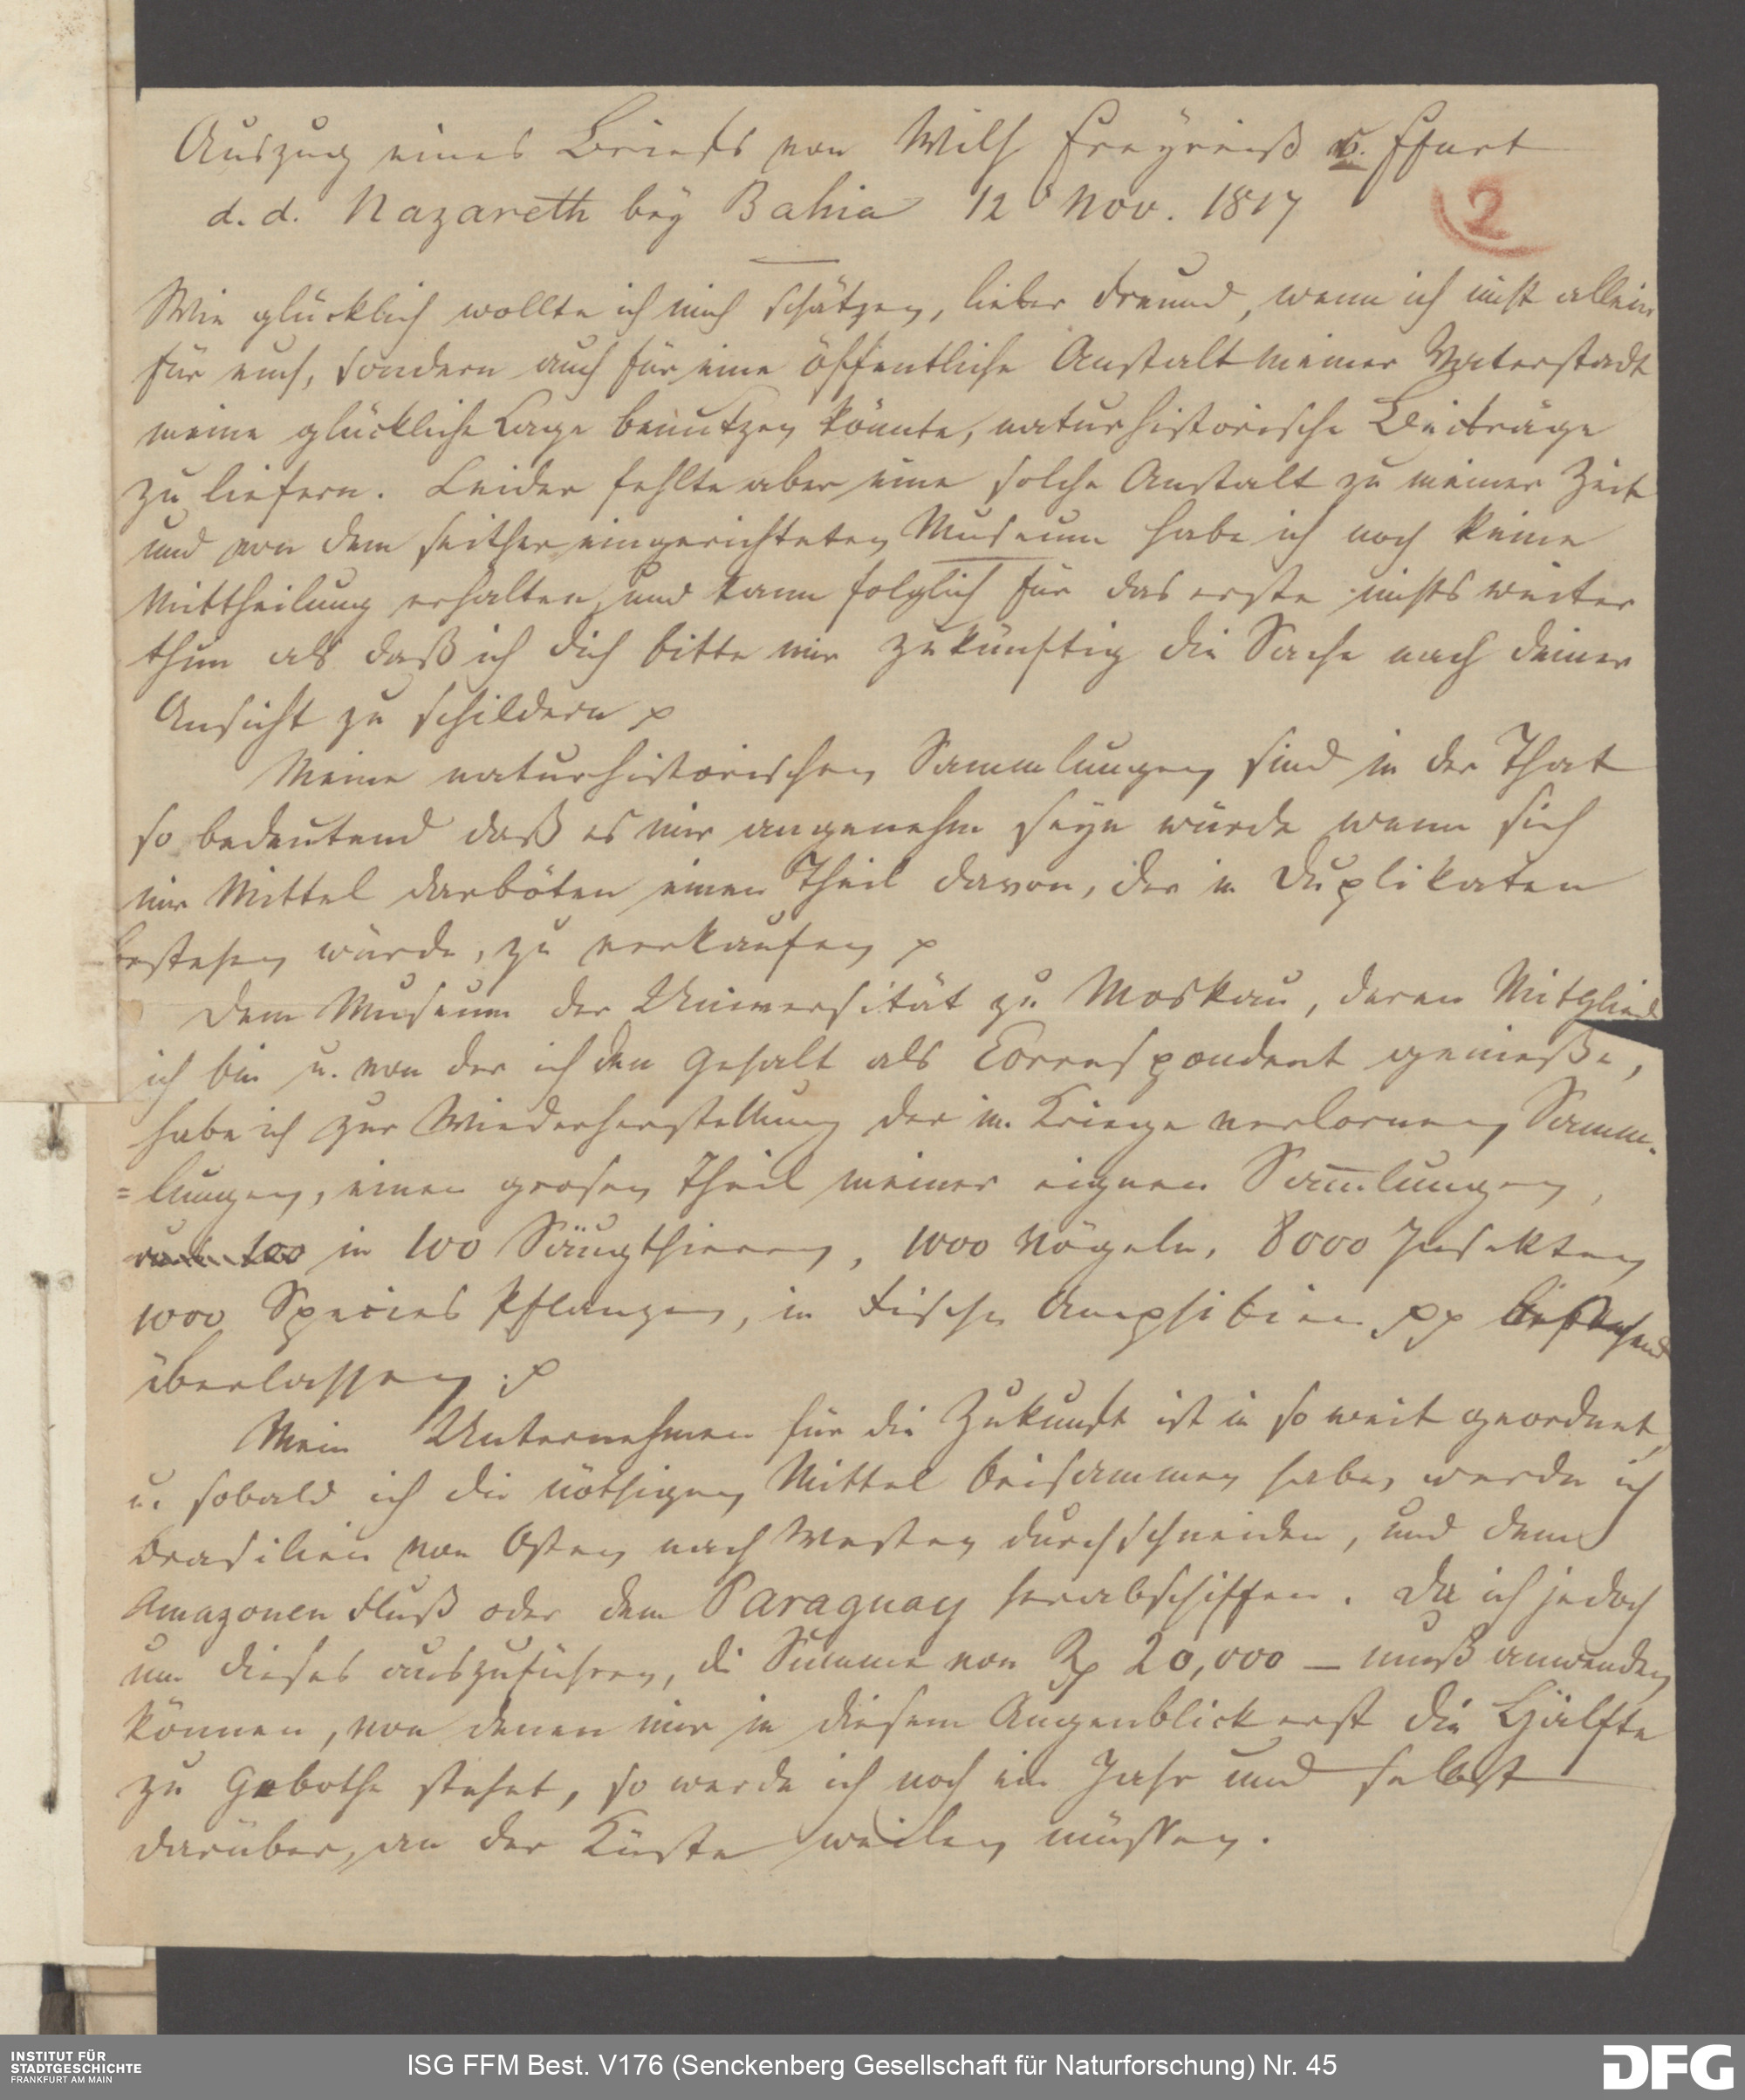 Auszug eines Briefs von Wilh Freyreiß v. Ffurt
d. d. Nazareth bey Bahia 12 Nov. 1817
2
Wie glücklich wollte ich mich schätzen, lieber Freund, wenn ich nicht allein
für euch, sondern auch für eine öffentliche Anstalt meiner Vaterstadt
meine glückliche Lage benutzen könnte, naturhistorische Beiträge
zu liefern. Leider fehlte aber eine solche Anstalt zu meiner Zeit
und von dem seither eingerichteten Museum habe ich noch keine
Mittheilung erhalten, und kann folglich für das erste nichts weiter
thun als daß ich dich bitte mir zukünftig die Sache nach deiner
Ansicht zu schildern p
Meine naturhistorischen Sammlungen sind in der That
so bedeutend daß es mir angenehm seyn würde wenn sich
mir Mittel darböten einen Theil davon, der in Duplikaten
bestehen würde, zu verkaufen p
Dem Museum der Universität zu Moskau, deren Mitglied
ich bin u. von der ich den Gehalt als Correspondent genieße,
habe ich zur Wiederherstellung der im Kriege verlornen Samm-
=lungen, einen grosen Theil meiner eignen Sam̅lungen,
in 100 Säugthieren, 1000 Vögeln, 8000 Insekten
1000 Species Pflanzen, in Fische Amphibien pp bestehend
überlassen p
Mein Unternehmen für die Zukunft ist in so weit geordnet,
u. sobald ich die nöthigen Mittel beisammen habe, werde ich
Brasilien von Osten nach Westen durchschneiden, und dem
Amazonen Fluß oder dem Paraguay herabschiffen. Da ich jedoch
um dieses auszuführen, die Summe von 20,000 – muß anwenden
können, von denen mir in diesem Augenblick erst die Hälfte
zu Gebothe stehet, so werde ich noch ein Jahr und selbst
darüber, an der Küste weilen müssen.
INSTITUT FÜR
STADTGESCHICHTE
FRANKFURT AM MAIN
ISG FFM Best. V176 (Senckenberg Gesellschaft für Naturforschung) Nr. 45
DFG